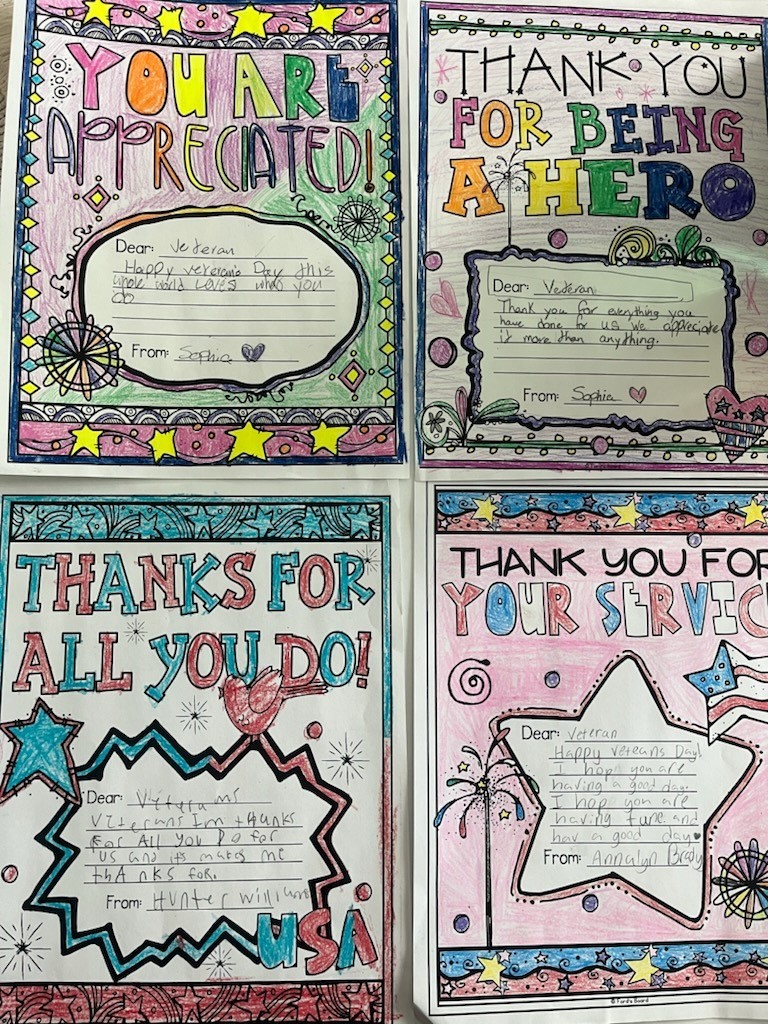 YOU ARE
APPRECIATED!
Dear: Veteran
Happy veteran's Day this
whole world Loves what you
do
From: Sophia
THANK YOU
FOR BEING
A HERO
Dear: Veteran
Thank you for everything you
have done for us we appreciate
it more than anything.
From: Sophia
THANKS FOR
ALL YOU DO!
Dear: Viterans
Viterans Im thanks
For All You Do for
us and it's makes me
thanks for.
From: Hunter williams
USA
THANK YOU FOR
YOUR SERVIC
Dear: Veteran
Happy veteans Day!
I hop you are
having a good day.
I hop you are
having fune and
hav a good day
From: Annalyn Brady
© Ford's Board